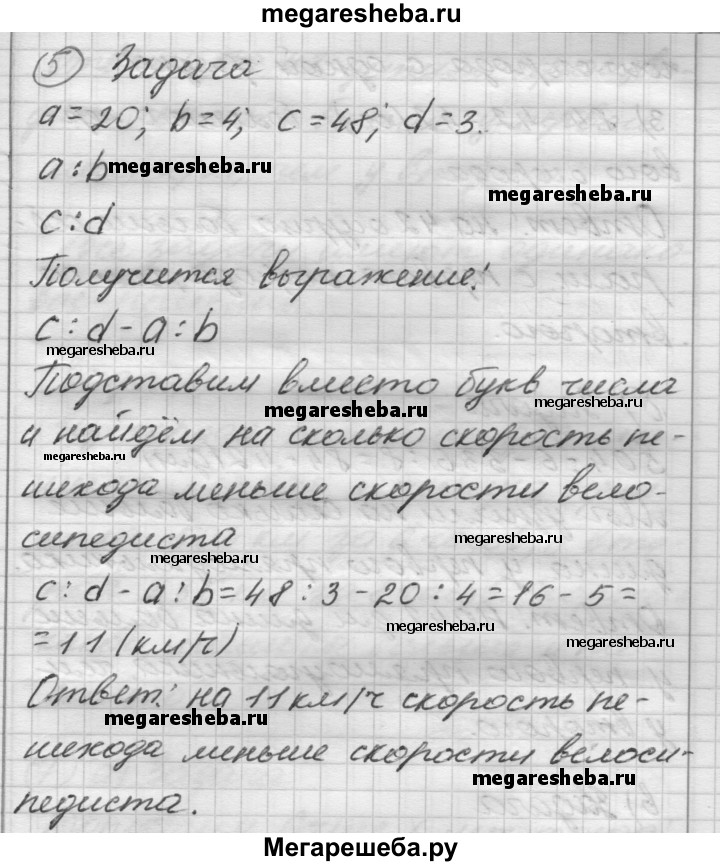 megaresheba.ru
5 Задача
a=20; b=4; c=48; d=3.
a:b megaresheba.ru
megaresheba.ru
c:d
Получится выражение:
c:d-a:b
megaresheba.ru
Подставим вместо букв числа
megaresheba.ru
megaresheba.ru
и найдём на сколько скорость пе-
megaresheba.ru
шехода меньше скорости вело-
сипедиста
megaresheba.ru
megaresheba.ru
c:d-a:b=48:3-20:4=16-5=
megaresheba.ru
=11(км/ч)
megaresheba.ru
Ответ: на 11км/ч скорость пе-
megaresheba.ru
шехода меньше скорости велоси-
megaresheba.ru
педиста.
Мегарешеба.ру